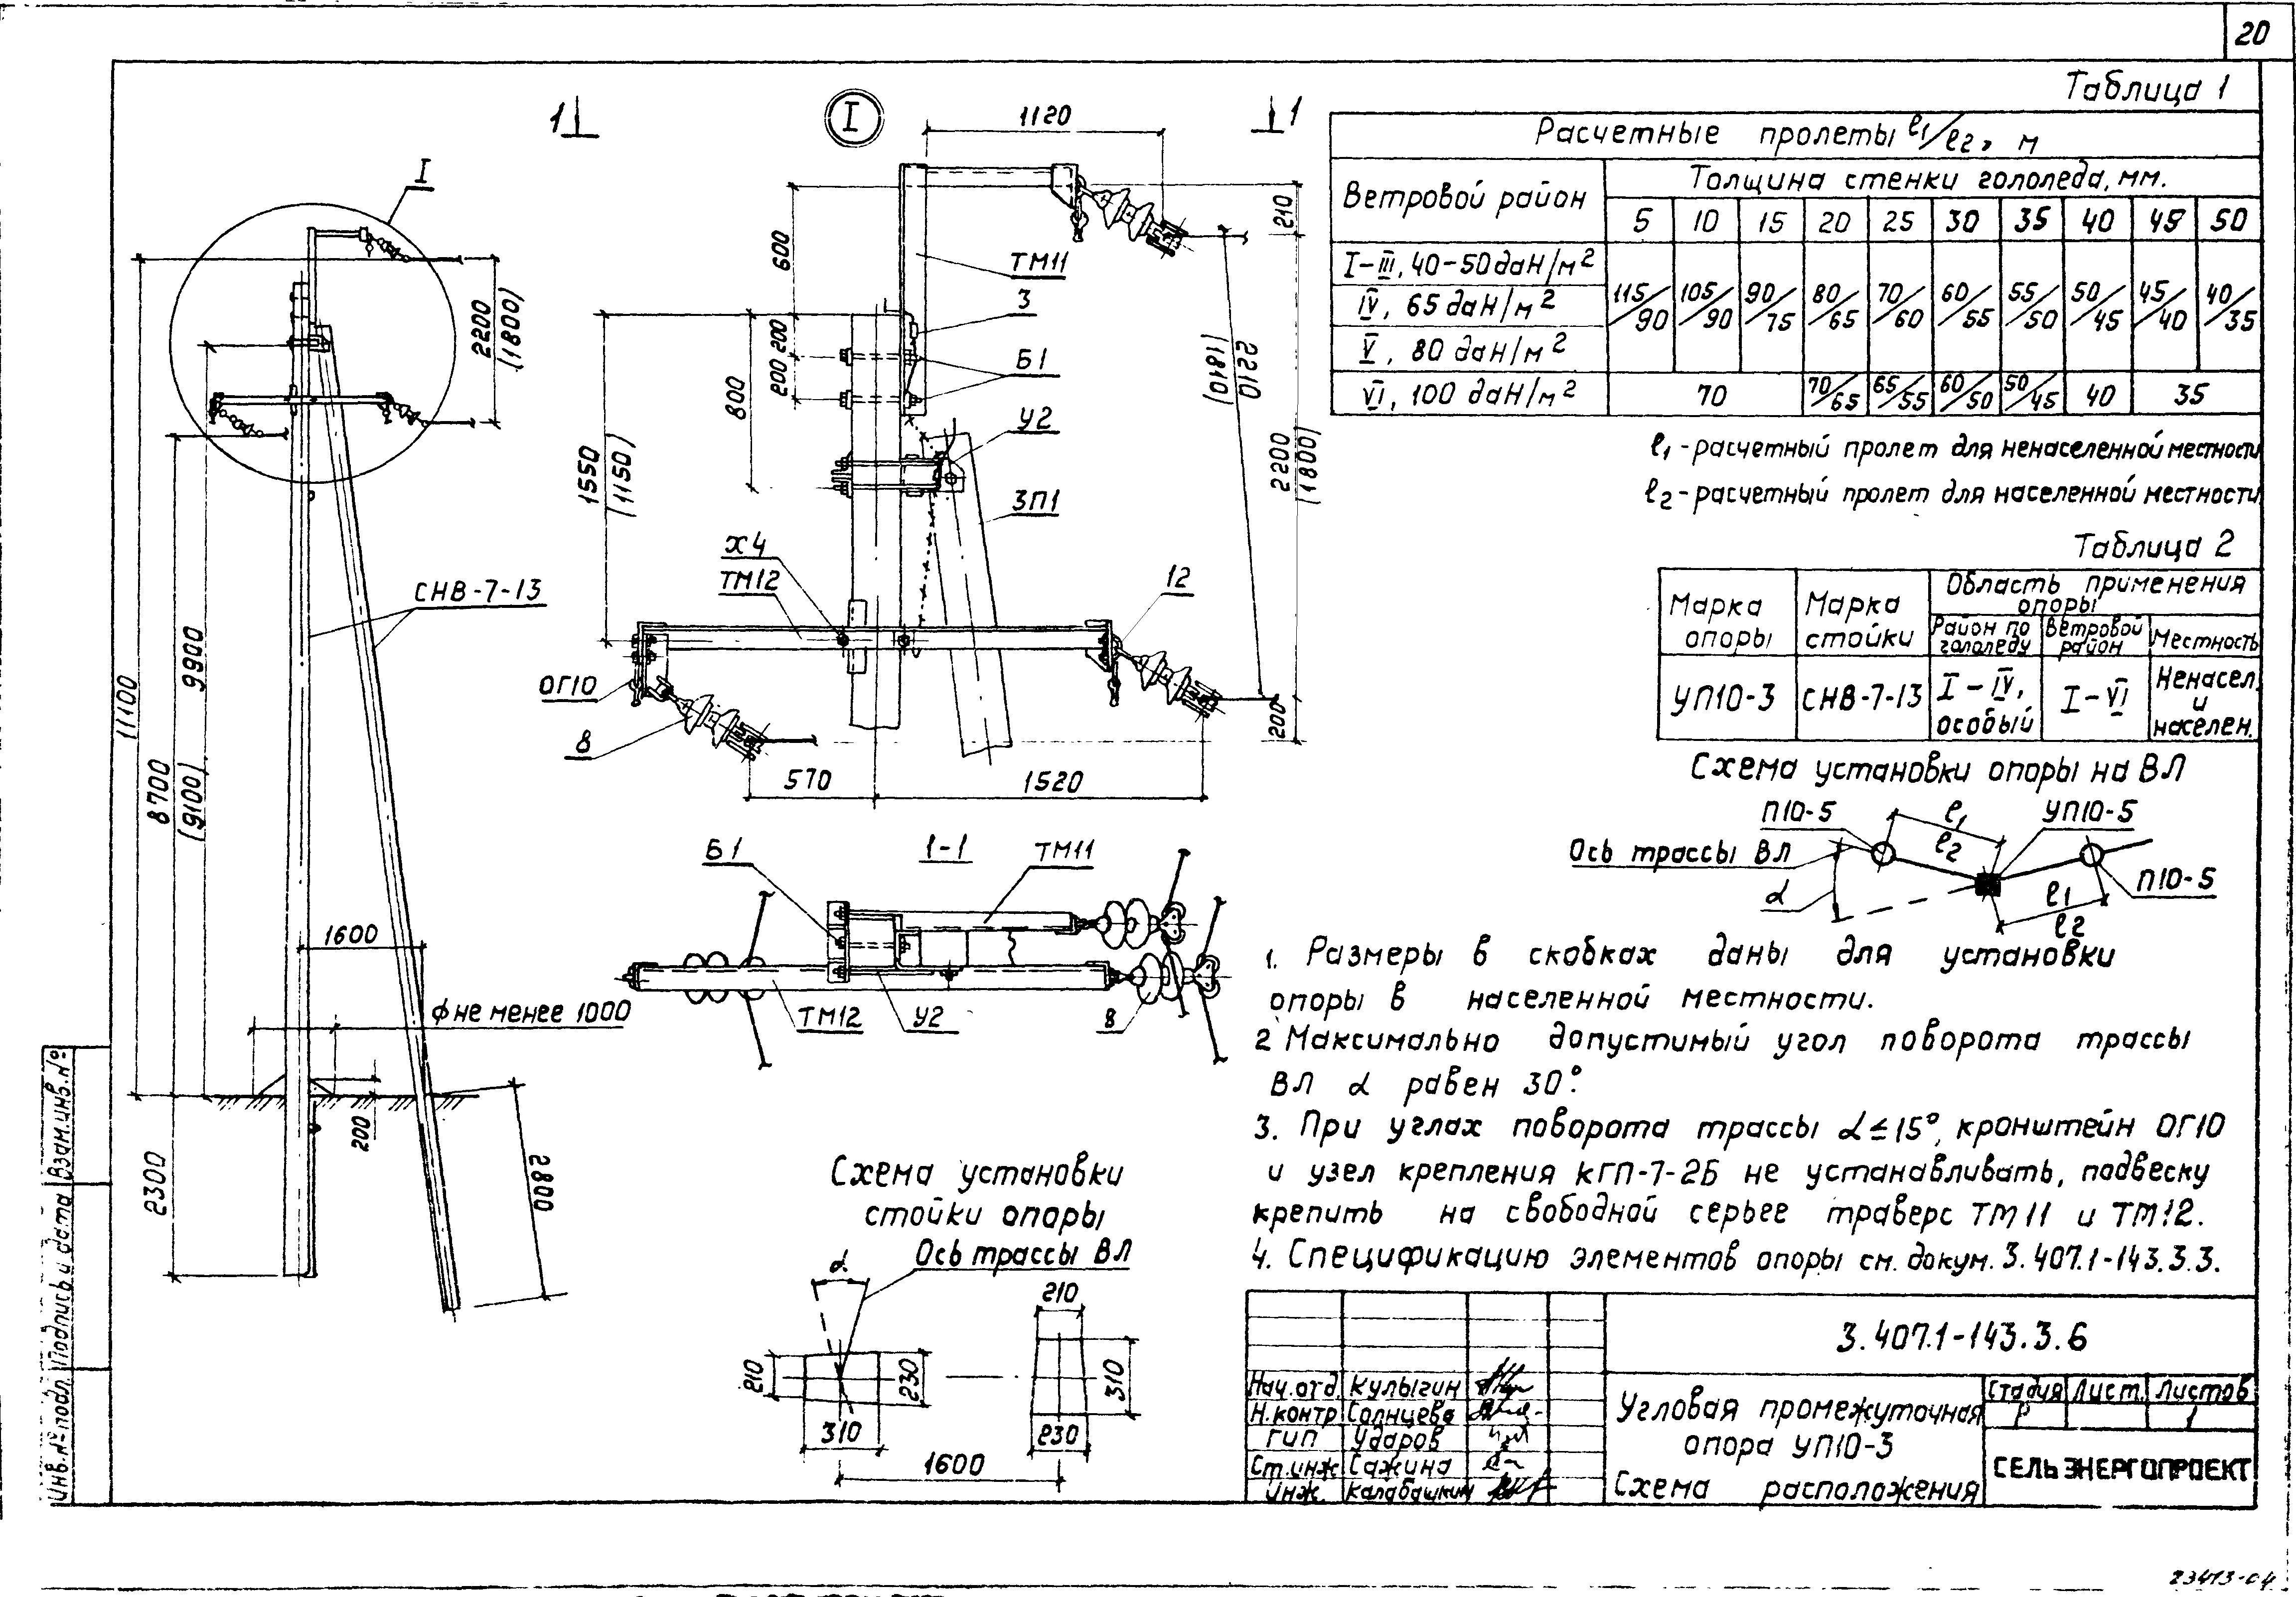 20
Таблица 1
Расчетные пролеты l1/l2, м
Ветровой район
Толщина стенки гололеда, мм.
5 10 15 20 25 30 35 40 45 50
I-III, 40-50 даН/м2
IV, 65 даН/м2
V, 80 даН/м2
115/90 105/90 90/75 80/65 70/60 60/55 55/50 50/45 45/40 40/35
VI, 100 даН/м2 70 70/65 65/55 60/50 50/45 40 35
l1 - расчетный пролет для ненаселенной местности
l2 - расчетный пролет для населенной местности
Таблица 2
Марка опоры
Марка стойки
Область применения опоры
Район по гололеду
Ветровой район
Местность
УП10-3
СНВ-7-13
I-IV, особый
I-VI
Ненасел. и населен.
Схема установки опоры на ВЛ
П10-5
l1
l2
УП10-5
Ось трассы ВЛ
α
l1
l2
П10-5
1. Размеры в скобках даны для установки
опоры в населенной местности.
2 Максимально допустимый угол поворота трассы
ВЛ α равен 30°.
3. При углах поворота трассы α≤15°, кронштейн ОГ10
и узел крепления КГП-7-2Б не устанавливать, подвеску
крепить на свободной серьге траверс ТМ11 и ТМ12.
4. Спецификацию элементов опоры см. докум. 3.407.1-143.3.3.
I
2200
(1800)
СНВ-7-13
11100
9900
(9100)
8700
1600
ϕ не менее 1000
200
2300
2800
1
I
1
1120
210
600
ТМ11
3
200
200
Б1
800
У2
1550
(1150)
ЗП1
2210
(1810)
2200
(1800)
Х4
ТМ12
12
ОГ10
8
200
570
1520
1-1
Б1
ТМ11
ТМ12
У2
8
Схема установки
стойки опоры
Ось трассы ВЛ
α
210
230
310
210
310
230
1600
3.407.1-143.3.6
Нач.отд. Кулыгин
Н.контр Солнцева
ГИП Ударов
Ст.инж Сажина
Инж. Калабашкин
Угловая промежуточная
опора УП10-3
Схема расположения
Стадия Лист. Листов
Р 1
СЕЛЬЭНЕРГОПРОЕКТ
Инв.№ подл. Подпись и дата Взам.инв.№
23413-04